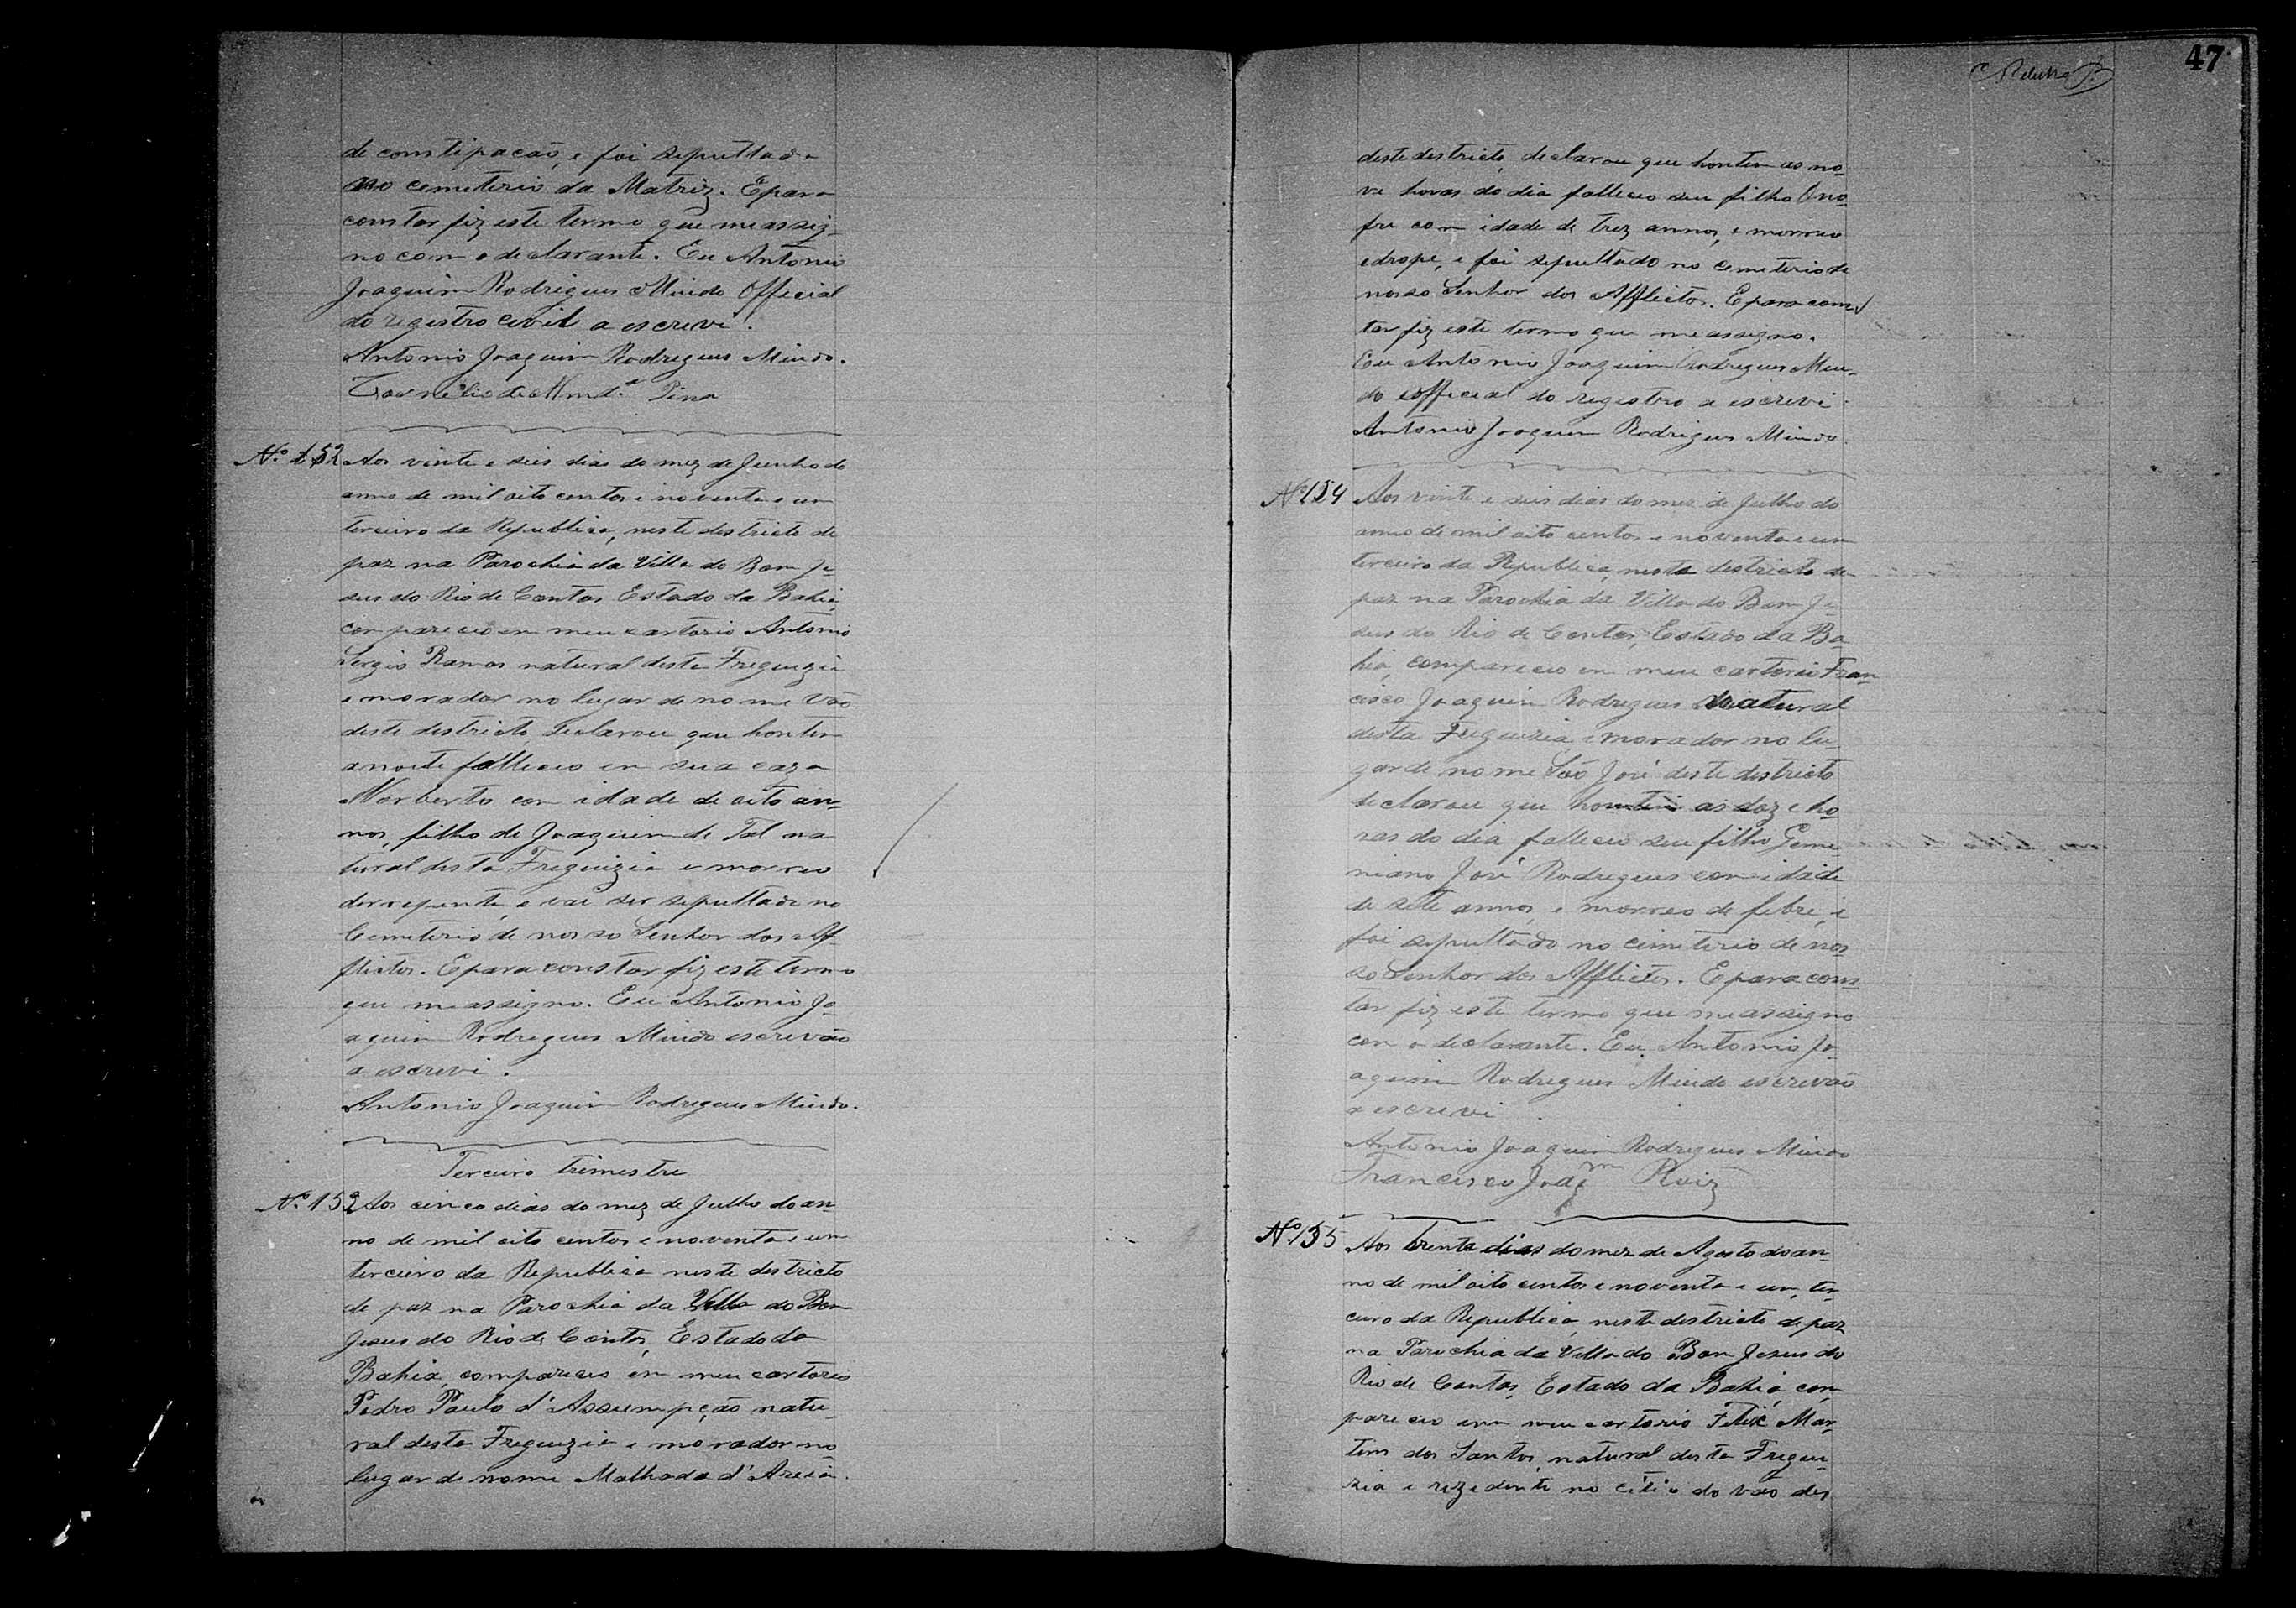 de constipacão, e foi sepultado
no cemeterio da Matriz. E para
constar fiz este termo que me assig-
no com o declarante. Eu Antonio
Joaquim Rodrigues Miudo Official
do registro civil a escrevi.
Antonio Joaquim Rodrigues Miudo.
de Almd.ª Pina
Nº 152 Aos vinte e seis dias do mez de Junho do
anno de mil oito centos e noventa e um
terceiro da Republica, neste destricto de
paz na Parochia da Villa do Bom Je-
sus do Rio de Contas Estado da Bahia,
compareceo em meu cartorio Antonio
Sergio Ramos natural desta Freguezia
e morador no lugar de nome Vão
deste destricto declarou que hontem
a noite falleceo em sua caza
Norberto com idade de oito an-
nos, filho de Joaquim de Tal na
tural desta Freguizia e morreo
derrepente, e vai ser sepultado no
Cemeterio de nosso Senhor dos Af-
flictos. E para constar fiz este termo
que me assigno. Eu Antonio Jo-
aquim Rodrigues Miudo escrevão
a escrevi.
Antonio Joaquim Rodrigues Miudo.
Terceiro trimestre
Nº 153 Aos cinco dias do mez de Julho do an-
no de mil oito centos e noventa e um
terceiro da Republica neste destricto
de paz na Parochia da Villa do Bom
Jesus do Rio de Contas, Estado da
Bahia, compareceo em meu cartorio
Pedro Paulo d'Assumpção natu-
ral desta Freguezia e morador no
lugar de nome Malhada d'Areia.
47
deste destricto, declarou que hontem as no-
ve horas do dia falleceo seu filho Ono-
fre com idade de trez annos, e morreo
edrope, e foi sepultado no cemeterio de
nosso Senhor dos Afflictos. E para cons
tar fiz este termo que me assigno.
Eu Antonio Joaquim Rodrigues Miu-
do official do registro a escrevi.
Antonio Joaquim Rodrigues Miudo.
Nº 154 Aos vinte e seis dias do mez de Julho do
anno de mil oito centos e noventa e um
terceiro da Republica, neste destricto de
paz na Parochia da Villa do Bom Je-
sus do Rio de Contas, Estado da Ba-
hia, compareceo em meu cartorio Fran-
cisco Joaquim Rodrigues natural
desta Freguezia e morador no lu-
gar de nome São José deste destricto
declarou que hontem as doze ho-
ras do dia falleceo seu filho Gemi-
niano José Rodrigues com idade
de sete annos, e morreo de febre, e
foi sepultado no cimeterio de nos-
so Senhor dos Afflictos. E para cons-
tar fiz este termo que me assigno
com o declarante. Eu Antonio Jo-
aquim Rodrigues Miudo escrevão
a escrevi.
Antonio Joaquim Rodrigues Miudo
Francisco Joaqm Roiz
Nº 155 Aos trinta dias do mez de Agosto do an-
no de mil oito centos e noventa e um, ter-
ceiro da Republica, neste destricto de paz
na Parochia da Villa do Bom Jesus do
Rio de Contas, Estado da Bahia, com-
pareceo em meu cartorio Felix Mar-
tins dos Santos, natural desta Fregue-
zia e rezedente no citio do vao des